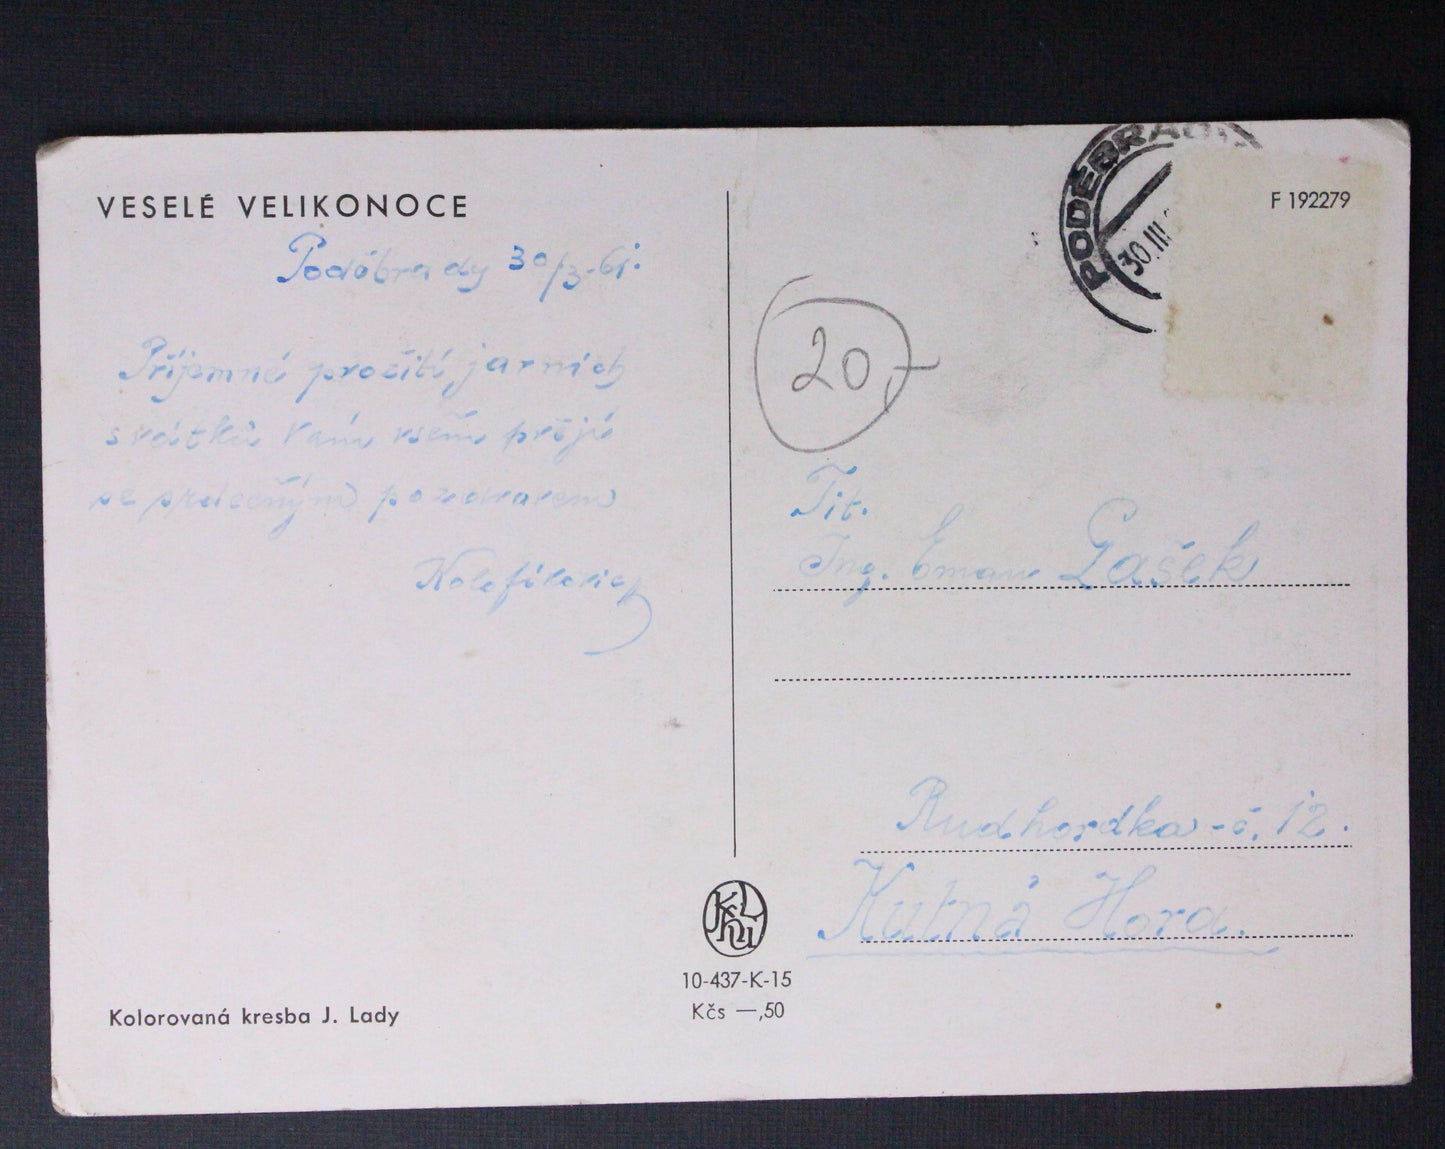 VESELÉ VELIKONOCE
Poděbrady 30/3-61.
Příjemné prožití jarních
svátků Vám všem přejí
se srdečným pozdravem
PODĚBRADY
30.III.
F 192279
20,-
Tit.
Ing. Eman Gašek
Rudhordka-č. 12.
Kutná Hora.
10-437-K-15
Kčs —,50
Kolorovaná kresba J. Lady